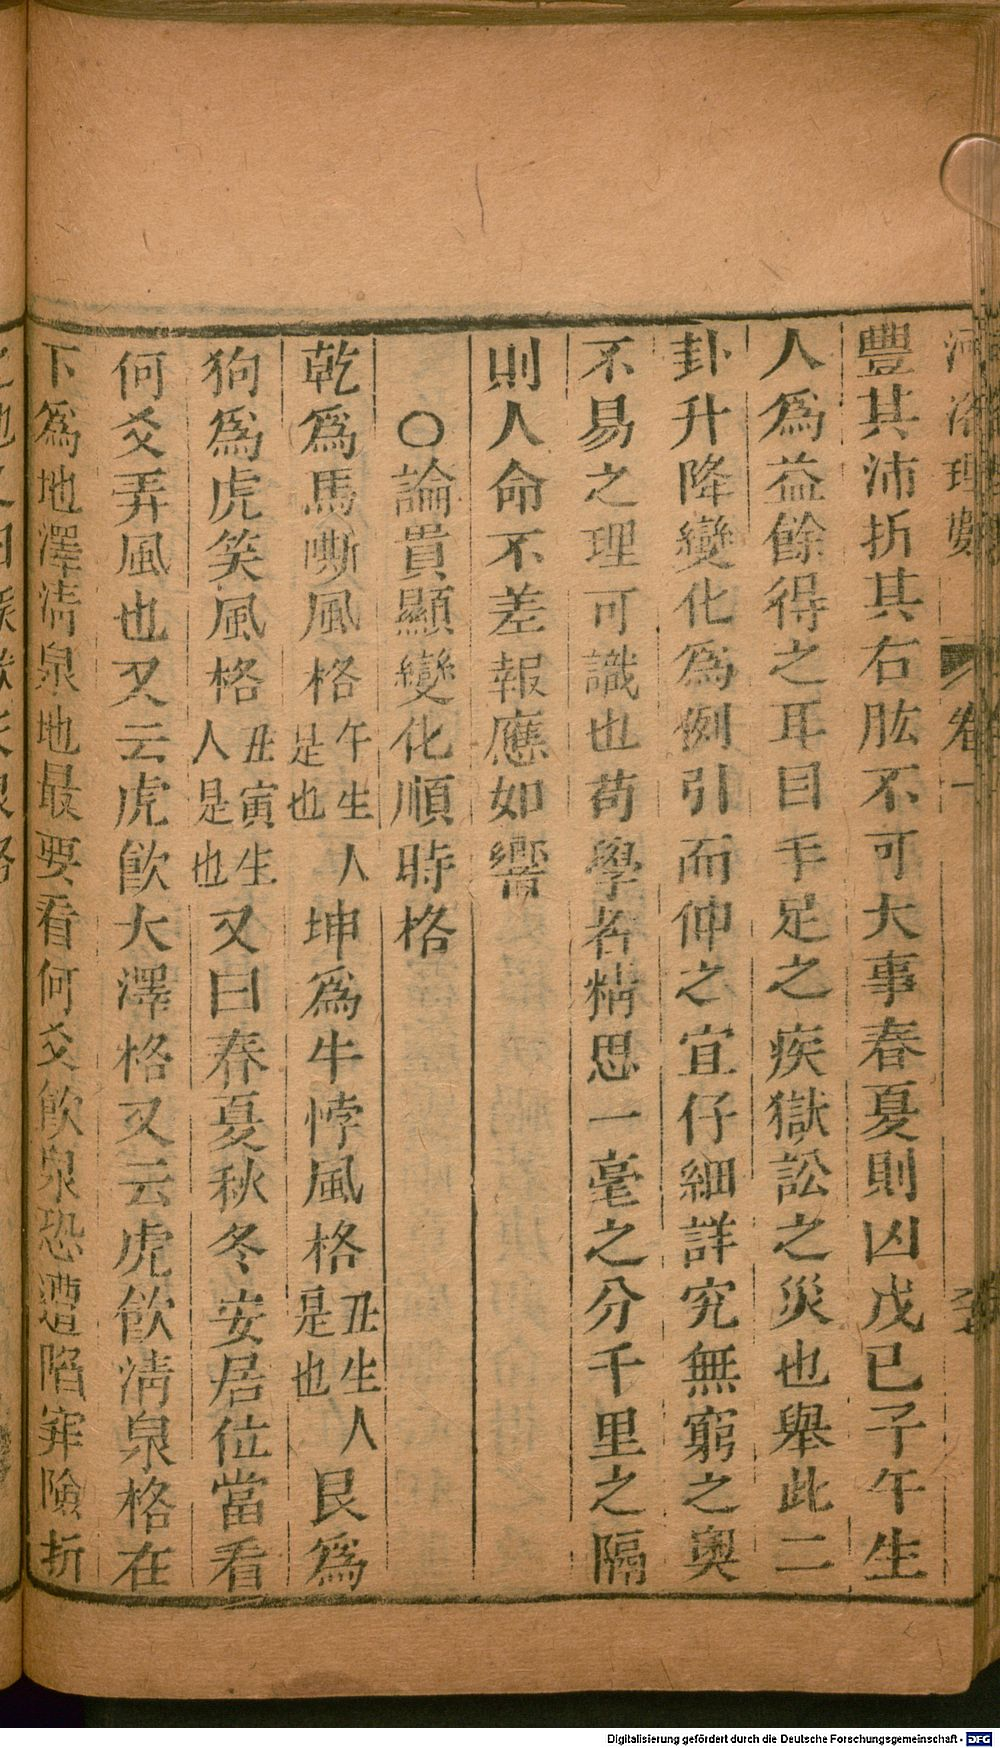 河洛理數 卷一
豐其沛折其右肱不可大事春夏則凶戊已子午生
人為益餘得之耳目手足之疾獄訟之災也舉此二
卦升降變化為例引而伸之宜仔細詳究無窮之奧
不易之理可識也苟學者精思一毫之分千里之隔
則人命不差報應如響
○論貴顯變化順時格
乾為馬嘶風格午生人是也坤為牛悖風格丑生人是也艮為
狗為虎笑風格丑寅生人是也又曰春夏秋冬安居位當看
何爻弄風也又云虎飲大澤格又云虎飲清泉格在
下為地澤清泉地最要看何爻飲泉恐遭陷穽險折
Digitalisierung gefördert durch die Deutsche Forschungsgemeinschaft - DFG